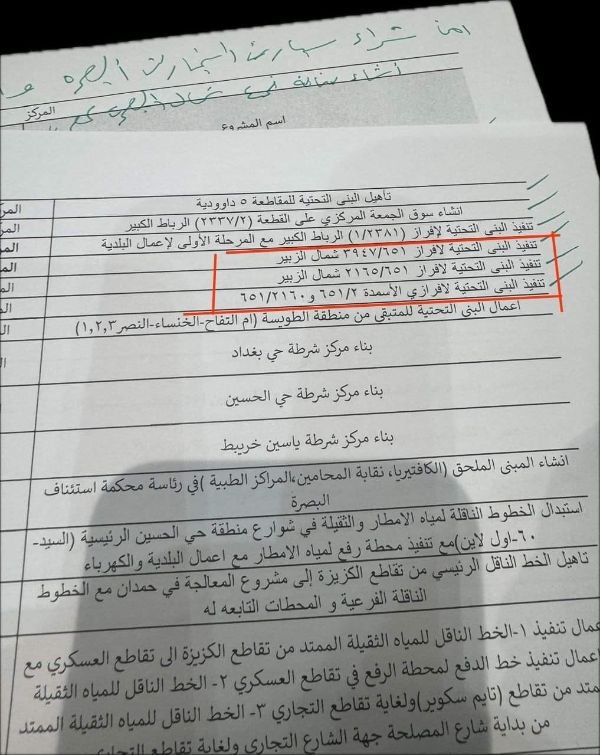 امن شراء سيارات
انشاء
المركز
اسم المشروع
تأهيل البنى التحتية للمقاطعة ٥ داوودية
انشاء سوق الجمعة المركزي على القطعة (٢٣٣٧/٢) الرباط الكبير
تنفيذ البنى التحتية لإفراز (١/٢٣٨١) الرباط الكبير مع المرحلة الأولى لإعمال البلدية
تنفيذ البنى التحتية لافراز ٣٩٤٧/٦٥١ شمال الزبير
تنفيذ البنى التحتية لافراز ٢١٦٥/٦٥١ شمال الزبير
تنفيذ البنى التحتية لافرازي الأسمدة ٦٥١/٢ و٦٥١/٢١٦٠
اعمال البنى التحتية للمتبقي من منطقة الطويسة (ام التفاح-الخنساء-النصر١,٢,٣)
بناء مركز شرطة حي بغداد
بناء مركز شرطة حي الحسين
بناء مركز شرطة ياسين خريبط
انشاء المبنى الملحق (الكافتيريا، نقابة المحامين،المراكز الطبية )في رئاسة محكمة استئناف
البصرة
استبدال الخطوط الناقلة لمياه الامطار والثقيلة في شوارع منطقة حي الحسين الرئيسية (السيد-
٦٠-اول لاين)مع تنفيذ محطة رفع لمياه الامطار مع اعمال البلدية والكهرباء
تاهيل الخط الناقل الرئيسي من تقاطع الكزيزة إلى مشروع المعالجة في حمدان مع الخطوط
الناقلة الفرعية و المحطات التابعه له
عمال تنفيذ ١-الخط الناقل للمياه الثقيلة الممتد من تقاطع الكزيزة الى تقاطع العسكري مع
اعمال تنفيذ خط الدفع لمحطة الرفع في تقاطع العسكري ٢- الخط الناقل للمياه الثقيلة
متد من تقاطع (تايم سكوير)ولغاية تقاطع التجاري ٣- الخط الناقل للمياه الثقيلة الممتد
من بداية شارع المصلحة جهة الشارع التجاري ولغاية تقاطع التجاري